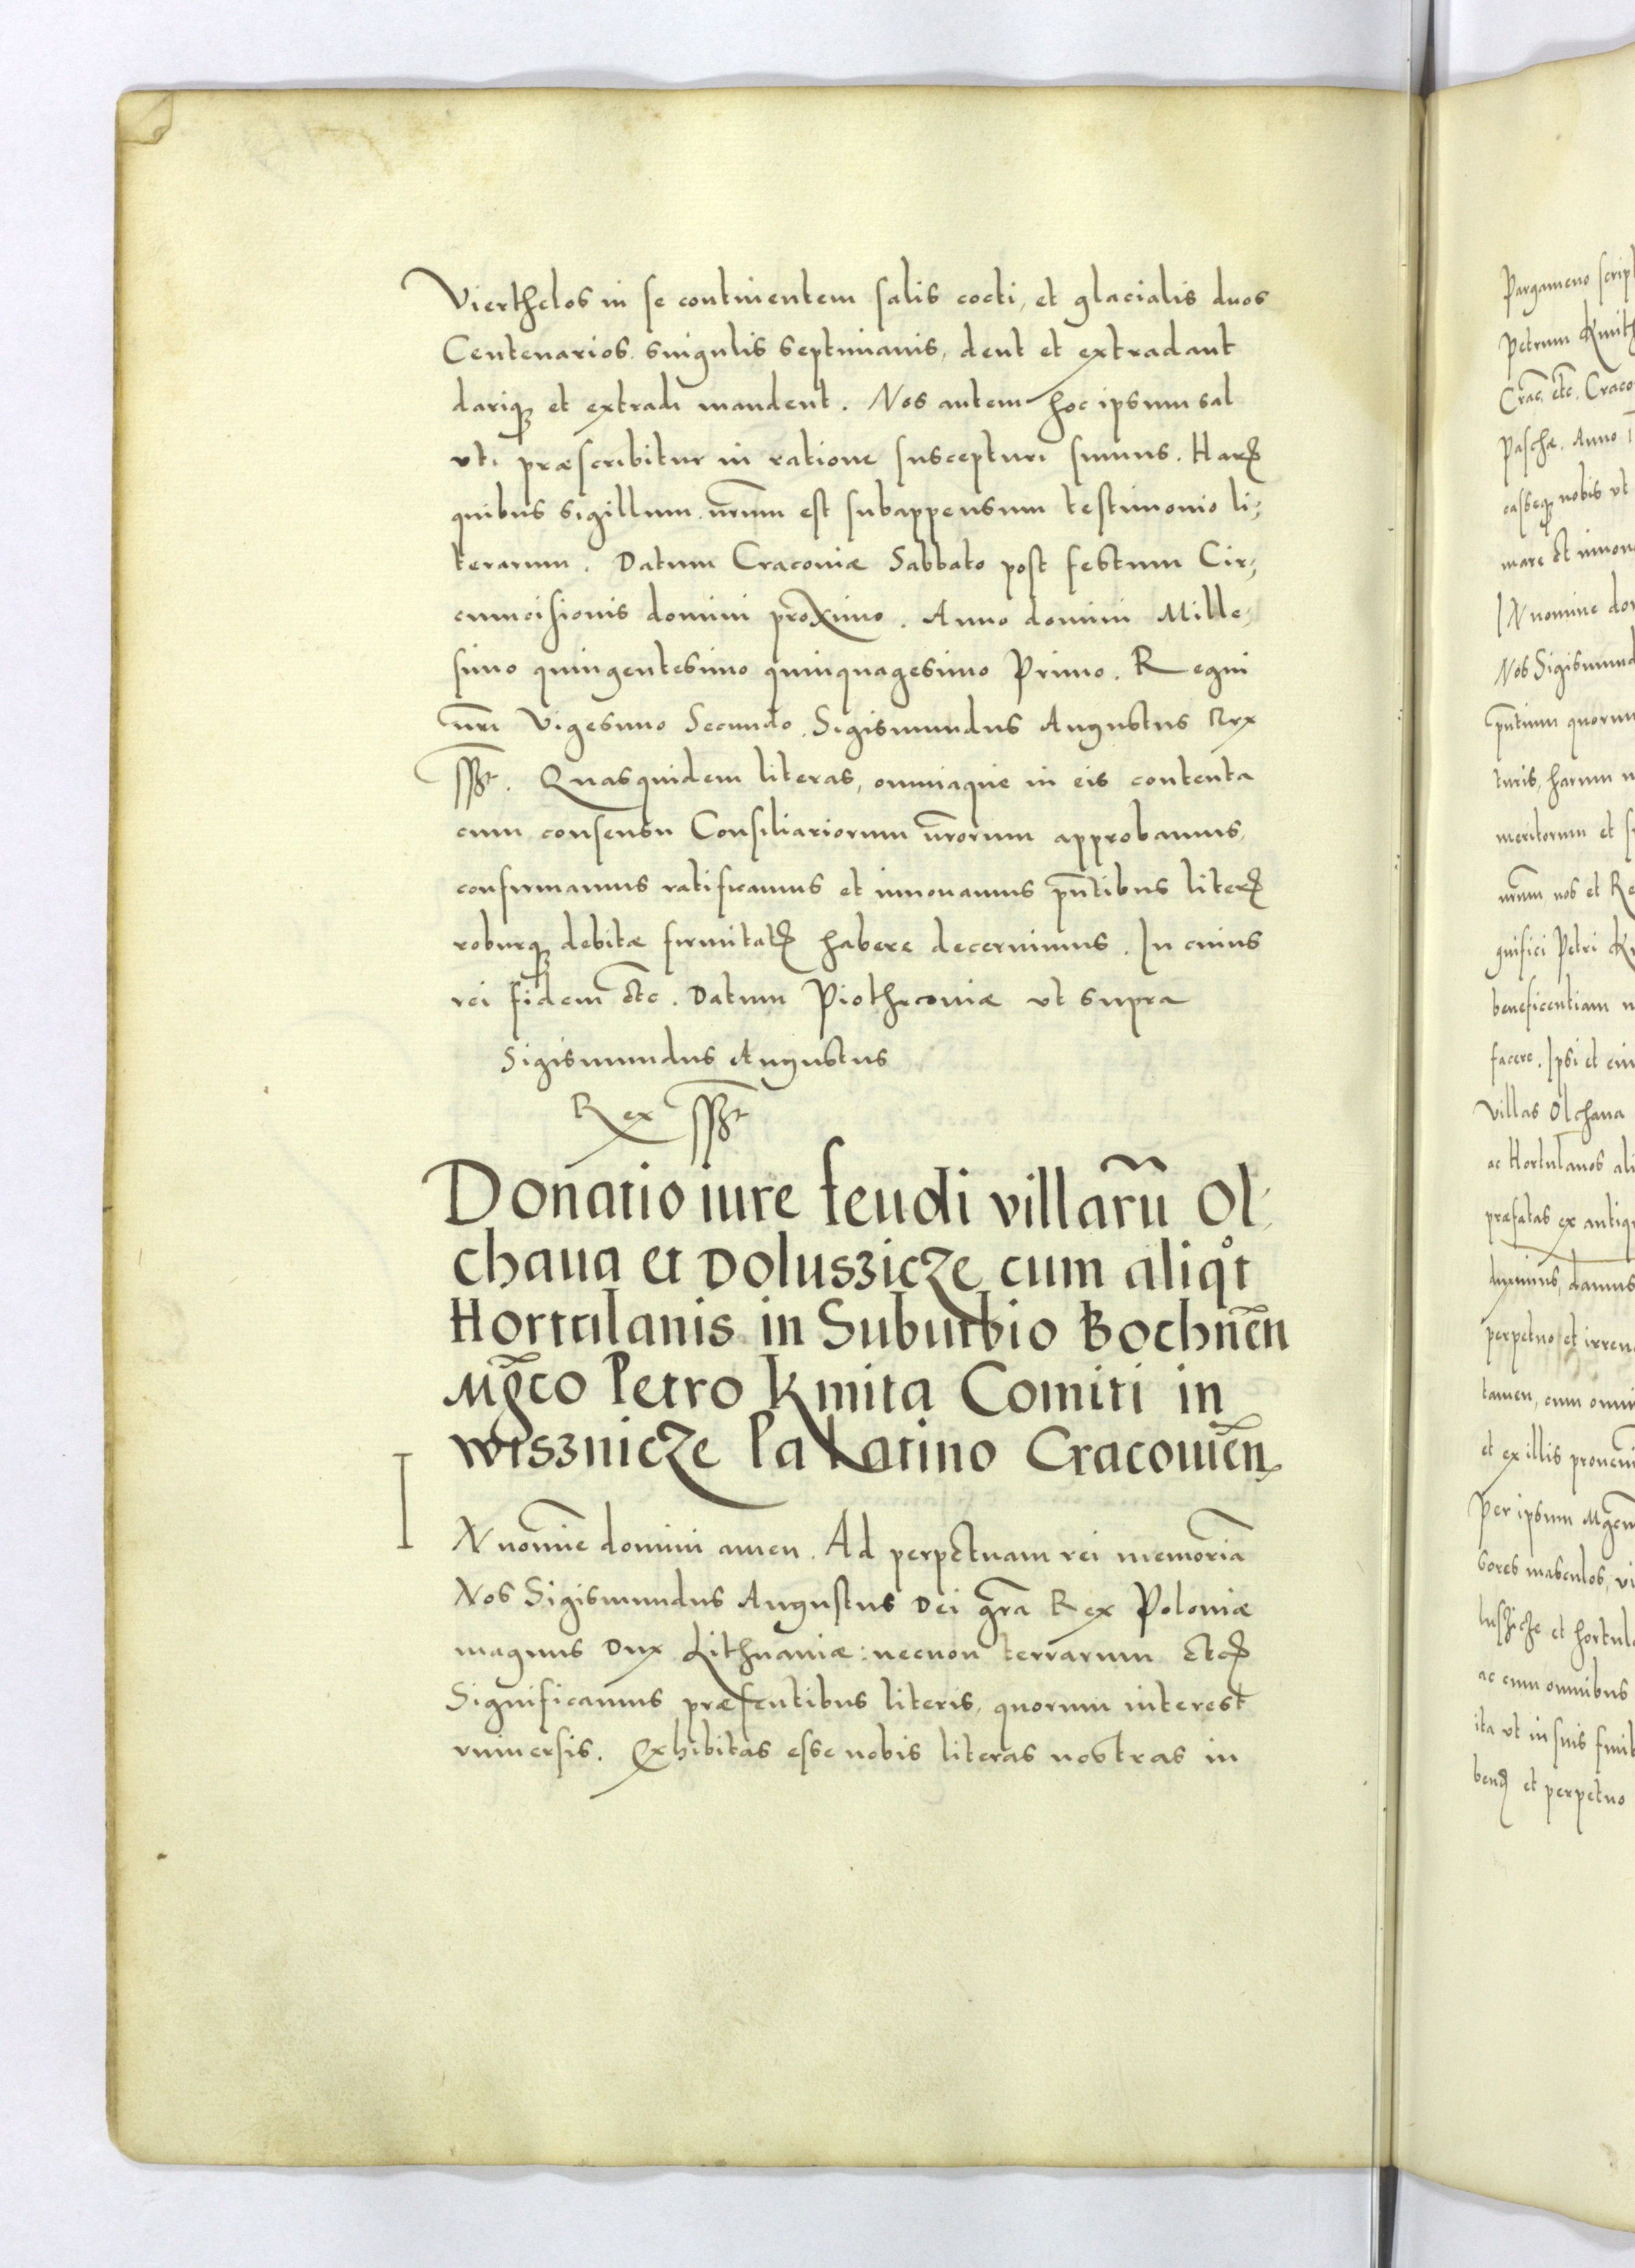 Vierthelos in se continentem salis cocti, et glacialis duos
Centenarios singulis septimanis, dent et extradant
dariq3 et extradi mandent. Nos autem hoc ipsum sal
uti præscribitur in ratione suscepturi sumus. Harꝝ
quibus sigillum nr̃um est subappensum testimonio li-
terarum. Datum Cracoviæ Sabbato post festum Cir-
cumcisionis domini proximo. Anno domini Mille-
simo quingentesimo quinquagesimo Primo. Regni
nr̃i Vigesimo Secundo. Sigismundus Augustus Rex
sszt. Quasquidem literas, omniaque in eis contenta
cum consensu Consiliariorum nr̃orum approbamus,
confirmamus ratificamus et innovamus pñtibus literꝭ
roburq3 debitæ firmitatꝭ habere decernimus. In cuius
rei fidem etc. Datum Piothrcoviæ ut supra
Sigismundus Augustus
Rex sszt
Donatio iure feudi villarũ Ol-
chaua et Doluszicze cum aliqͦt
Hortulanis in Suburbio Bochnẽn
Mg̃co Petro Kmita Comiti in
Wisznicze Palatino Cracouiẽn
IN nomĩe domini amen. Ad perpetuam rei memoriã
Nos Sigismundus Augustus Dei gr̃a Rex Poloniæ
magnus Dux Lithuaniæ: necnon terrarum etcꝭ
Significamus præsentibus literis, quorum interest
universis. Exhibitas esse nobis literas nostras in
Pargameno script
Petrum Kmith
Crac̃ etc̃. Craco
Paschæ. Anno 1
casseq3 nobis ut
mare et innou
IN nomine dom
Nos Sigismund
pñtium quorum
turis, harum n
meritorum et s
nr̃um nos et Re
gnifici Petri Km
beneficentiam n
facere. Ipsi et eiu
villas Olchaua
ac Hortulanos ali
præfatas ex antiqu
duximus, damus
perpetuo et irreuo
tamen, cum omni
et ex illis proueni
Per ipsum Mg̃cum
sores masculos, vi
luszicze et hortula
ac cum omnibus
ita ut in suis finib
bendꝭ et perpetuo